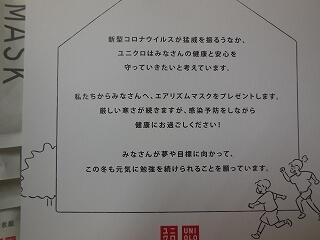 MASK
新型コロナウイルスが猛威を振るうなか、
ユニクロはみなさんの健康と安心を
守っていきたいと考えています。
私たちからみなさんへ、エアリズムマスクをプレゼントします。
厳しい寒さが続きますが、感染予防をしながら
健康にお過ごしください！
みなさんが夢や目標に向かって、
この冬も元気に勉強を続けられることを願っています。
ユニ
クロ
UNI
QLO